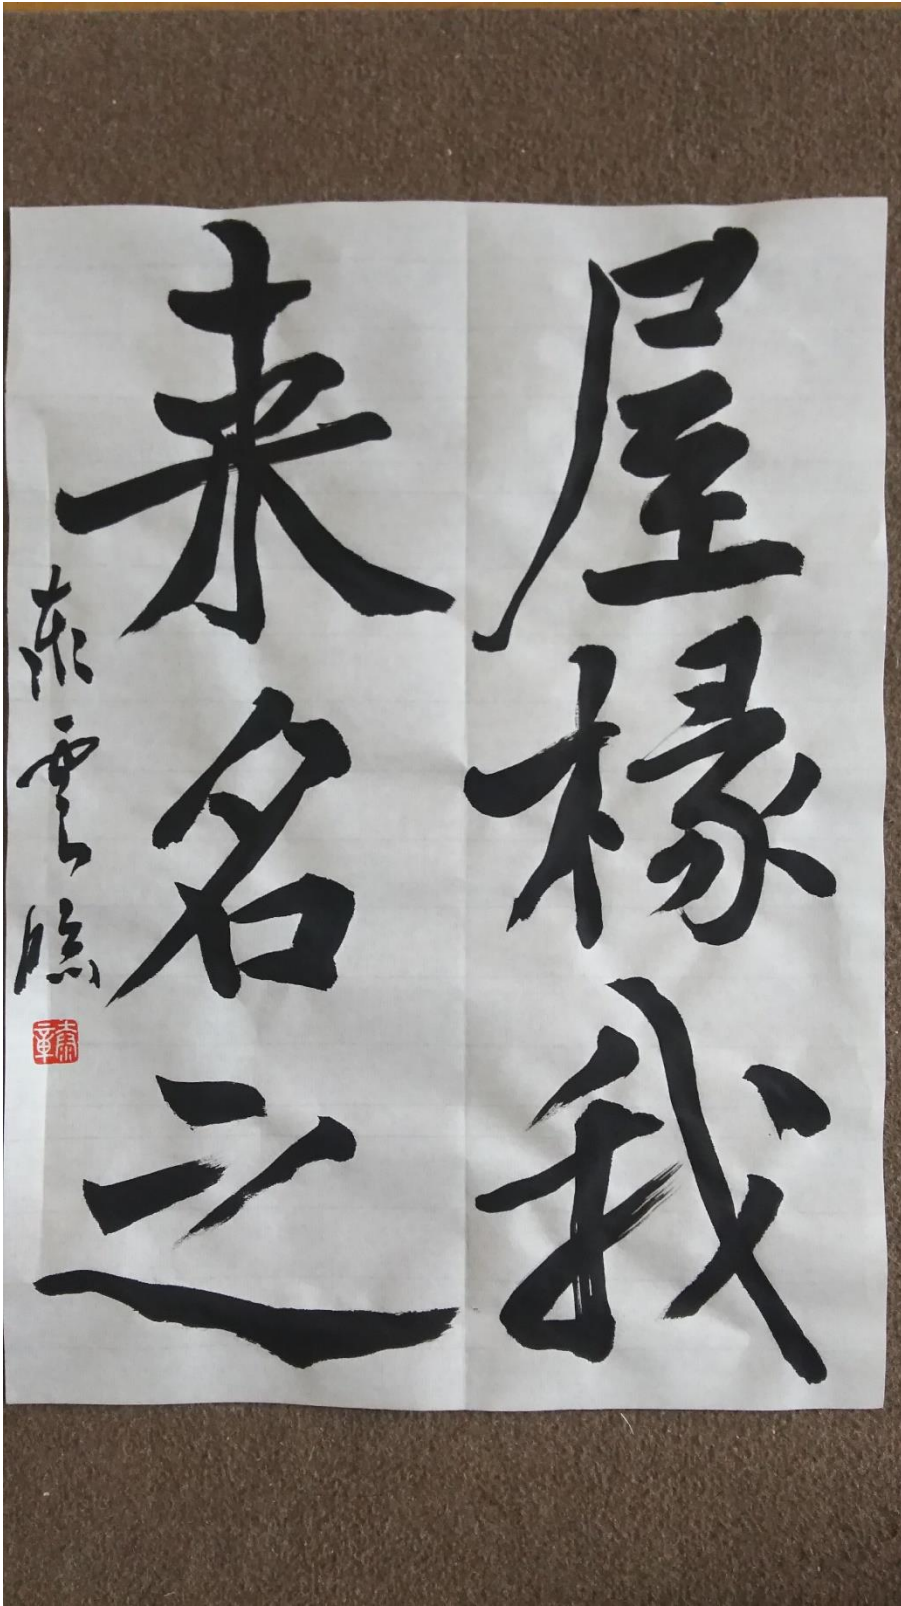 屋椽我
来名之
秦雲臨
秦章